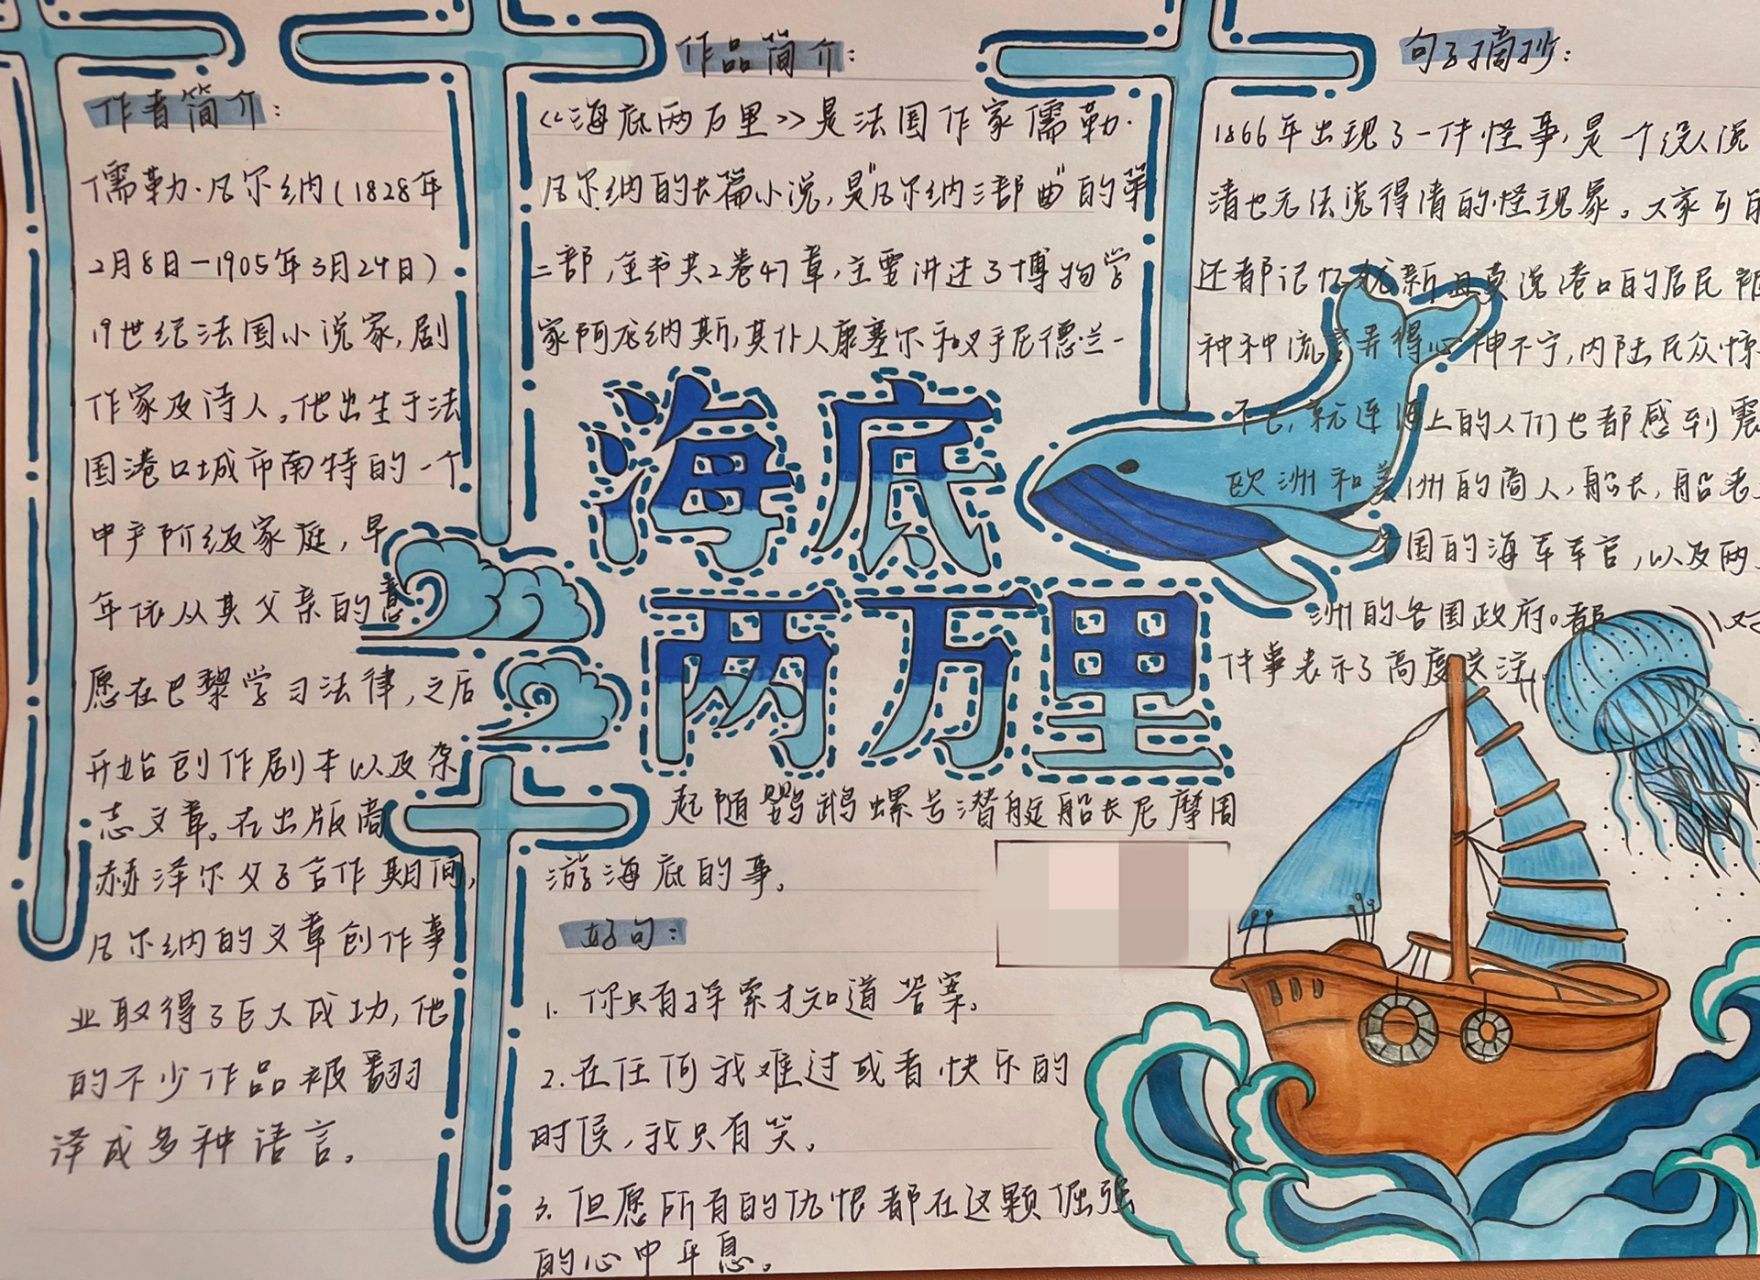 作者简介:
儒勒·凡尔纳(1828年
2月8日—1905年3月24日)
19世纪法国小说家,剧
作家及诗人。他出生于法
国港口城市南特的一个
中产阶级家庭,早
年依从其父亲的意
愿在巴黎学习法律,之后
开始创作剧本以及杂
志文章。在出版商
赫泽尔父子合作期间,
凡尔纳的文章创作事
业取得了巨大成功,他
的不少作品被翻
译成多种语言。
作品简介:
《海底两万里》是法国作家儒勒·
凡尔纳的长篇小说,是"凡尔纳三部曲"的第
二部,全书共2卷47章,主要讲述了博物学
家阿龙纳斯,其仆人康塞尔和叉手尼德·兰一
海底
两万里
起随鹦鹉螺号潜艇船长尼摩周
游海底的事。
好句:
1. 你只有探索才知道答案。
2.在任何我难过或者快乐的
时候,我只有笑。
3.但愿所有的仇恨都在这颗倔强
的心中平息。
句子摘抄:
1866年出现了一件怪事,是一个没人说
清也无法说得清的怪现象。大家可
还都记忆犹新且莫说港口的居民
种种流言弄得心神不宁,内陆民众惊
不已,就连海上的人们也都感到震
欧洲和美洲的商人,船长,船老
各国的海军军官,以及两
洲的各国政府。都 对
件事表示了高度关注